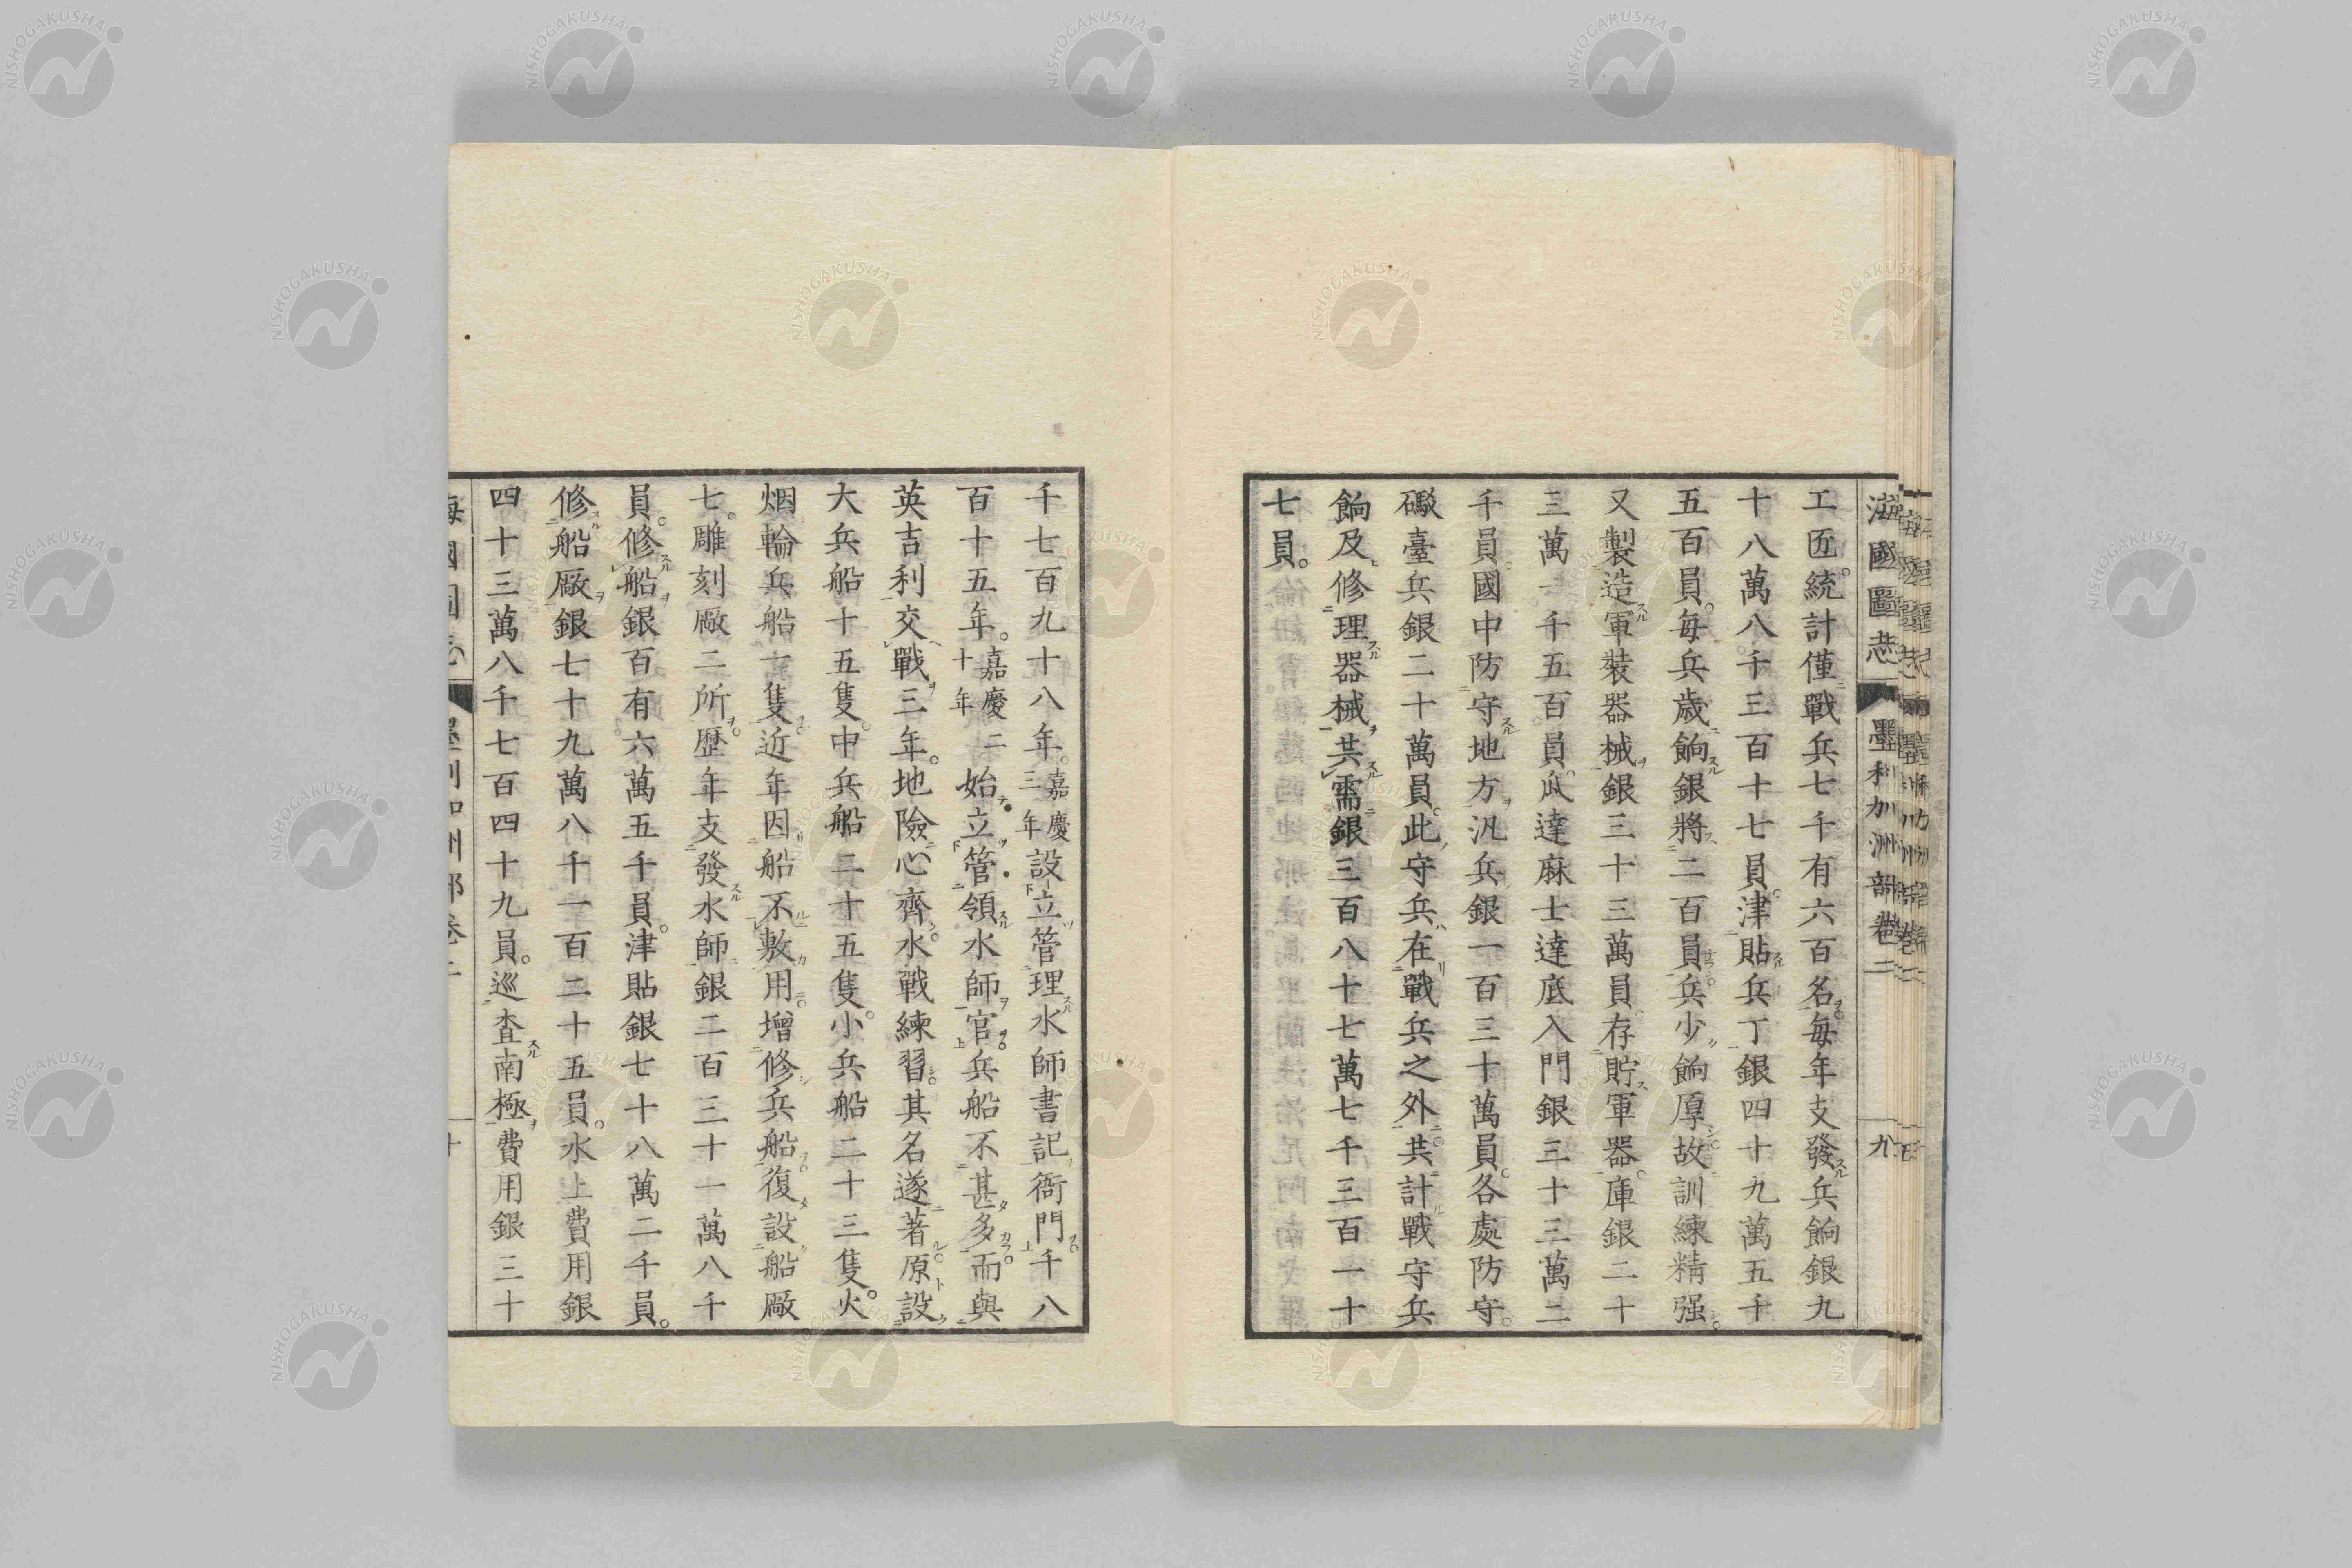 海國圖志 墨利加洲部卷二 九
工匠。統計僅戰兵七千有六百名。每年支發兵餉銀九
十八萬八千三百十七員。津貼兵丁銀四十九萬五千
五百員。每兵歲餉銀將二百員。兵少餉厚。故訓練精强。
又製造軍裝器械銀三十三萬員。存貯軍器庫銀二十
三萬一千五百員。瓜達麻士達底入門銀三十三萬二
千員。國中防守地方汛兵銀一百三十萬員。各處防守。
礮臺兵銀二十萬員。此守兵在戰兵之外。共計戰守兵
餉及修理器械共需銀三百八十七萬七千三百一十
七員。
千七百九十八年。嘉慶三年設立管理水師書記衙門千八
百十五年。嘉慶二十年始立管領水師官兵船不甚多。而與
英吉利交戰三年。地險心齊。水戰練習。其名遂著。原設
大兵船十五隻。中兵船二十五隻。小兵船二十三隻。火
烟輪兵船一隻。近年因船不敷用。增修兵船。復設船廠
七。雕刻廠二所。歷年支發水師銀二百三十一萬八千
員。修船銀百有六萬五千員。津貼銀七十八萬二千員。
修船廠銀七十九萬八千一百二十五員。水上費用銀
四十三萬八千七百四十九員。巡查南極費用銀三十
NISHOGAKUSHA